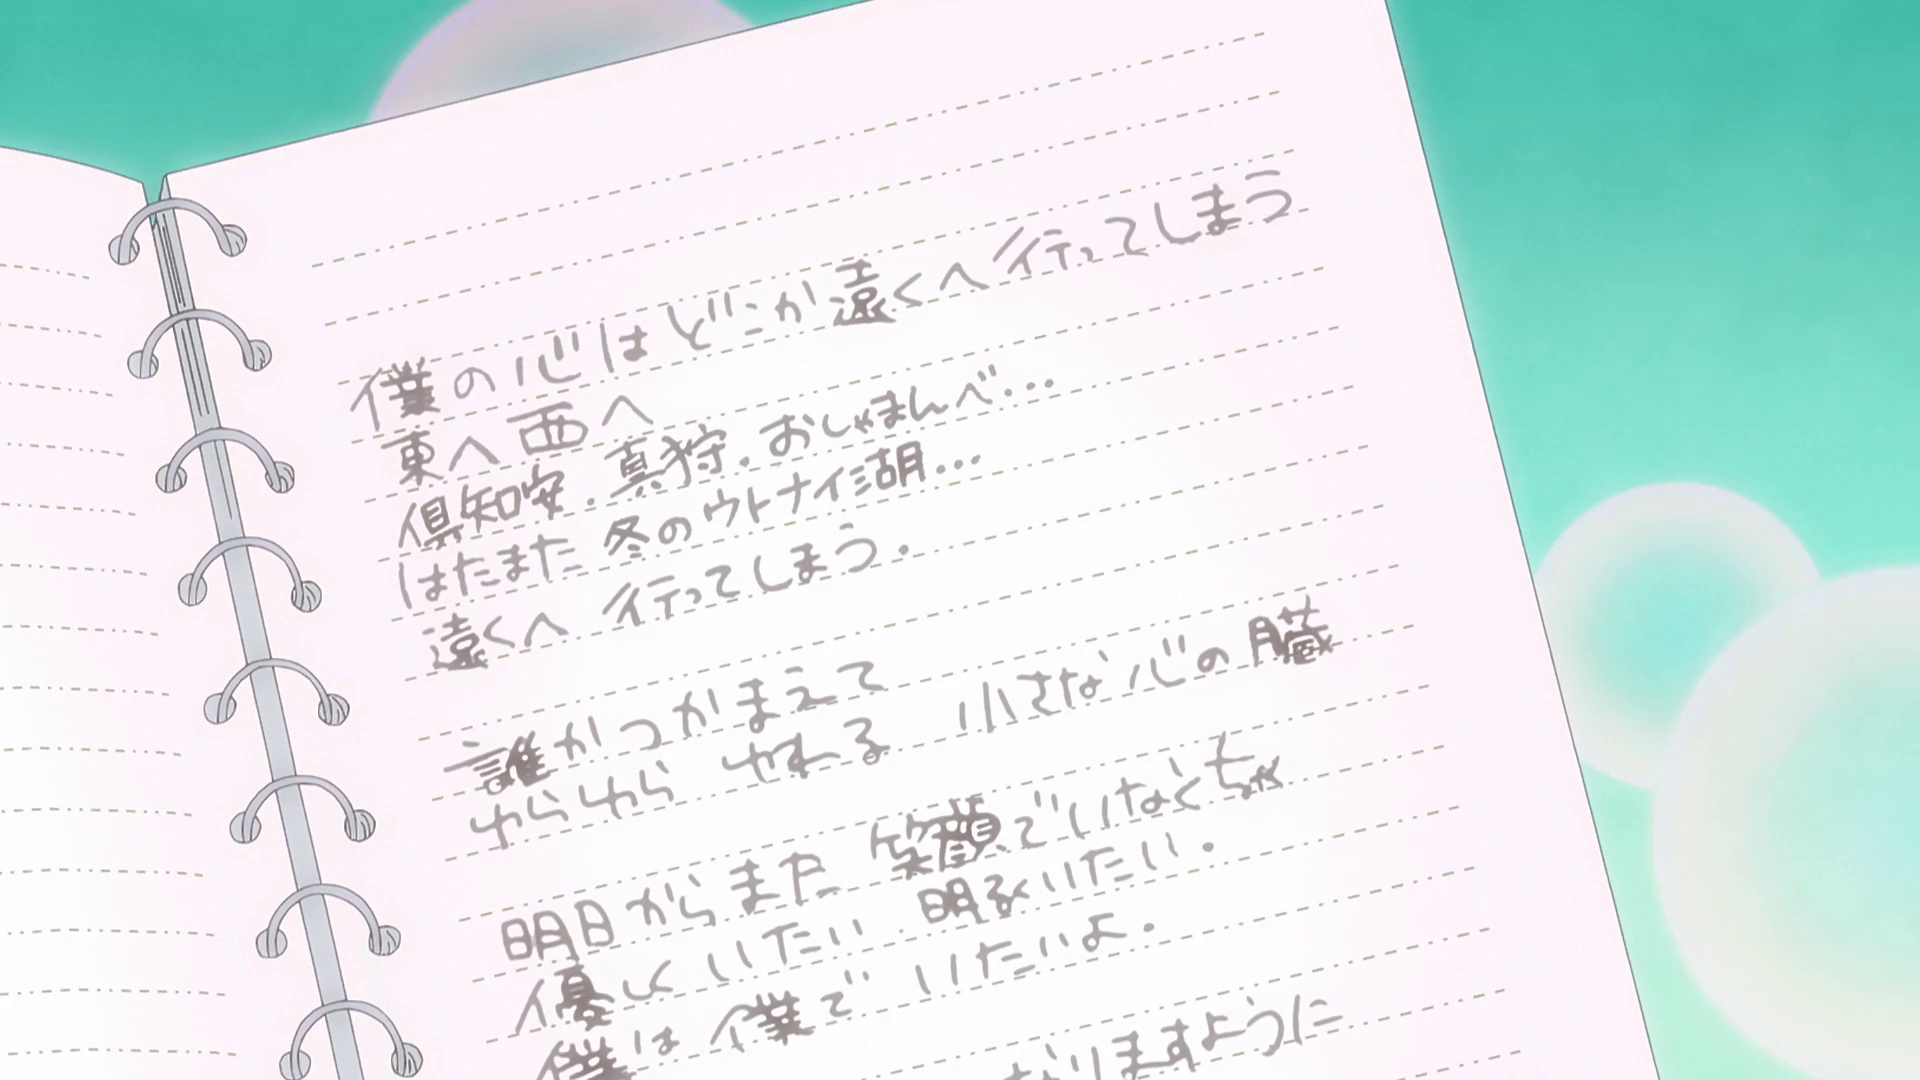 僕の心はどこか遠くへ行ってしまう
東へ西へ
倶知安.真狩.おしゃまんべ...
はたまた 冬のウトナイ湖...
遠くへ 行ってしまう.
誰かつかまえて
ゆらゆら ゆれる 小さな心の臓
明日からまた 笑顔でいなくちゃ
優しくいたい 明るくいたい.
僕は僕で いたいよ.
なりますように